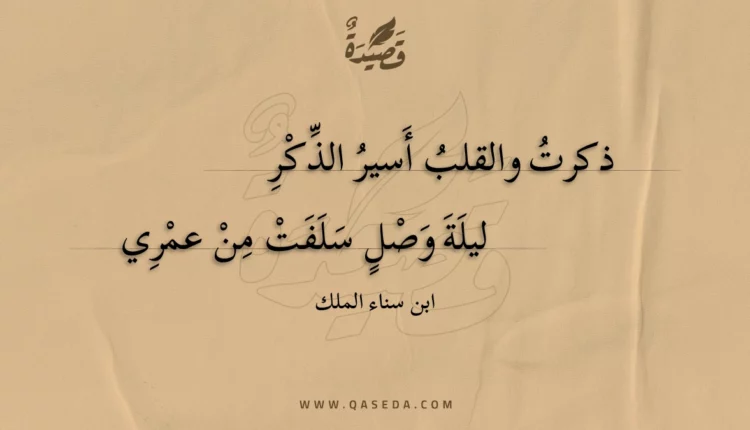 قَصِيْدَةٌ
ذكرتُ والقلبُ أَسيرُ الذِّكْرِ
ليلَةَ وَصْلٍ سَلَفَتْ مِنْ عمْرِي
ابن سناء الملك
WWW.QASEDA.COM